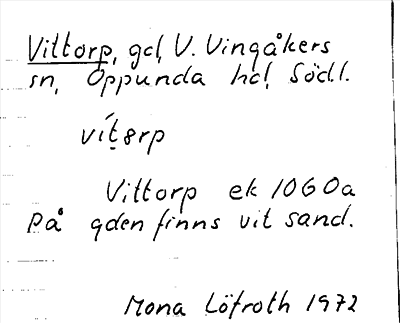 Vittorp, gd, V. Vingåkers
sn, Oppunda hd, Södl.
vít̤8rp
Vittorp ek 10G0a
På gden finns vit sand.
Mona Löfroth 1972